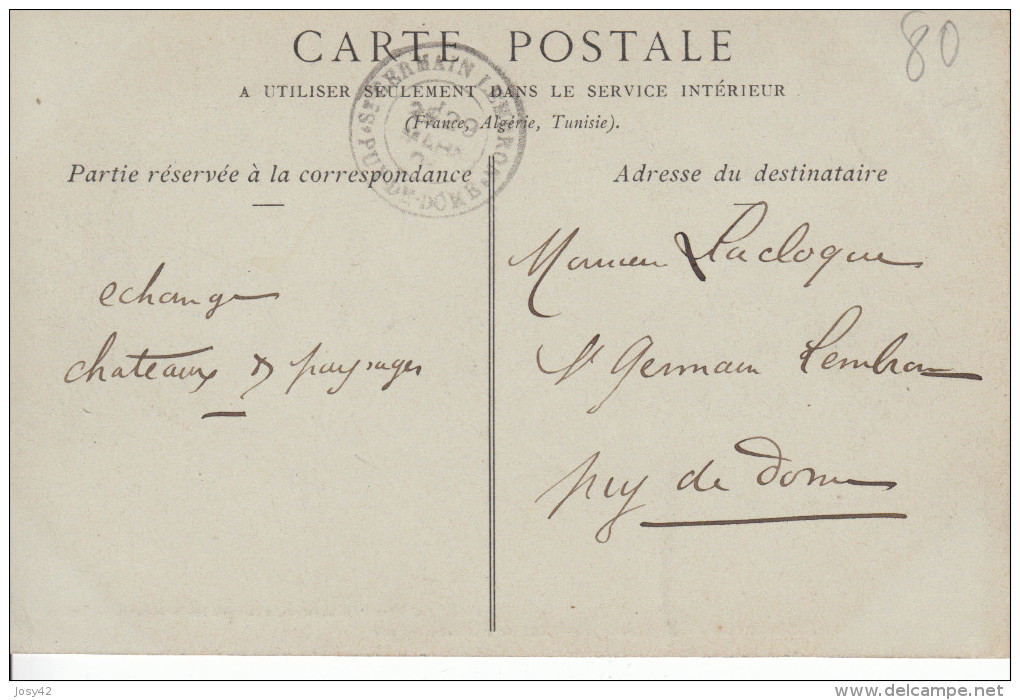 CARTE POSTALE
80
A UTILISER SEULEMENT DANS LE SERVICE INTÉRIEUR
(France, Algérie, Tunisie).
ST GERMAIN LEMBRON
PUY-DE-DOME
Partie réservée à la correspondance
Adresse du destinataire
echange
chateaux & paysages
Monsieur Lacloque
St Germain Lembron
puy de Dome
Josy42
www.delcampe.net